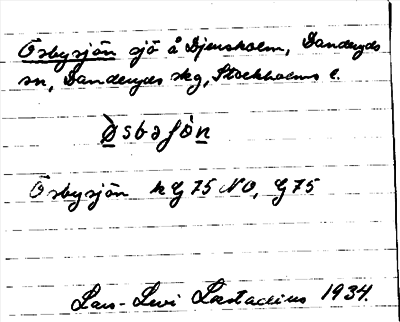 Ösbysjön sjö å Djursholm, Danderyds
sn, Danderyds skg, Stockholms l.
Ösbysjön kG 75 NO, G 75
Lars-Levi Læstadius 1934.